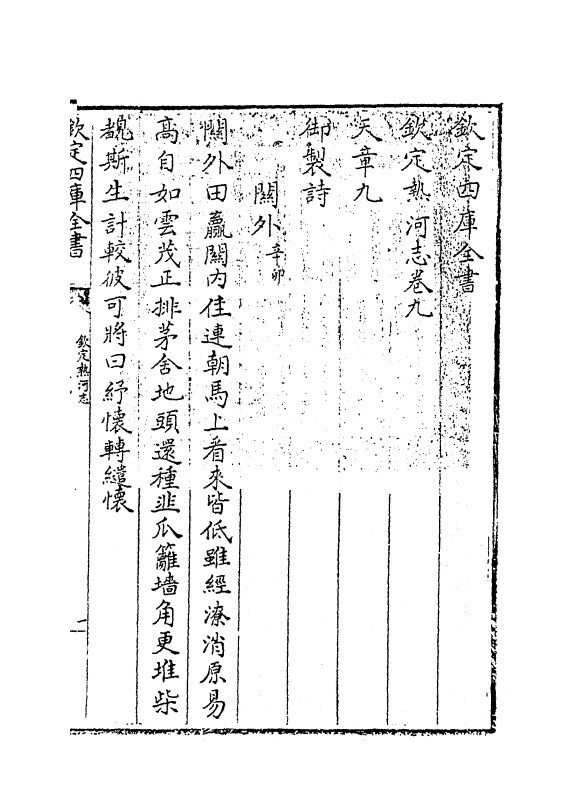 欽定四庫全書
欽定熱河志卷九
天章九
御製詩
關外辛卯
關外田贏關内佳連朝馬上看來皆低雖經潦消原易
高自如雲茂正排茅舍地頭還種韭瓜籬墻角更堆柴
覩斯生計較彼可將曰紓懷轉繾懷
欽定四庫全書
欽定熱河志
一